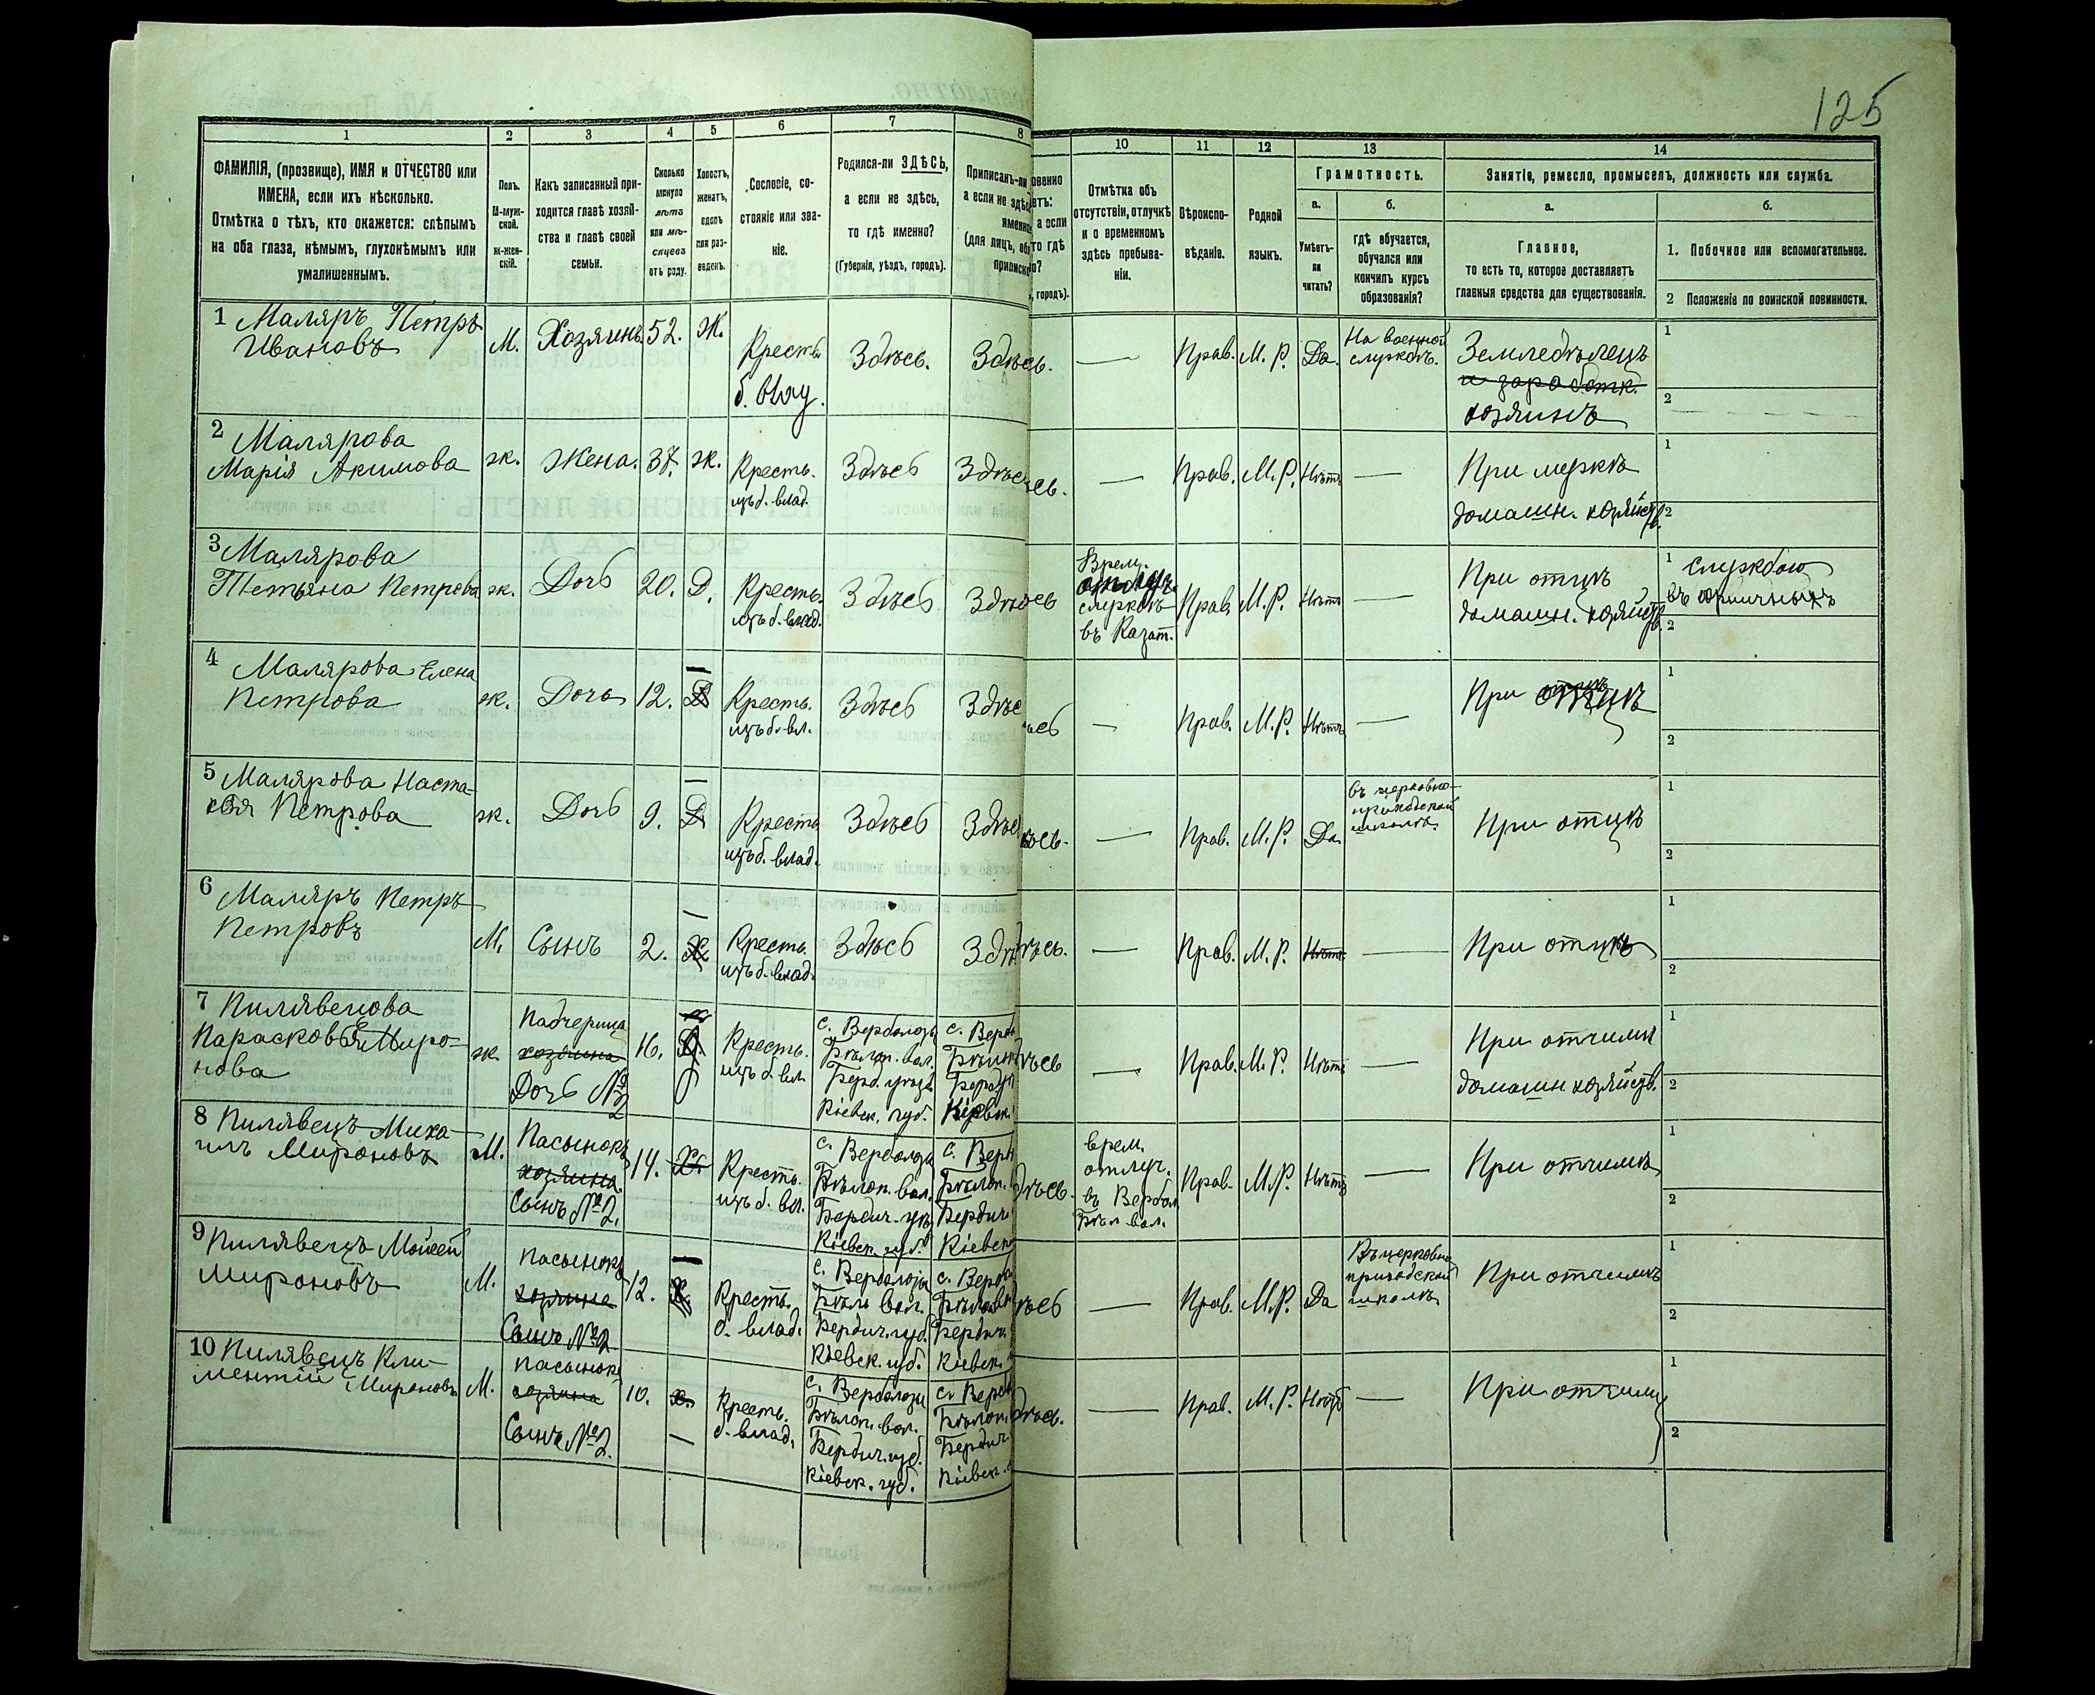 125
1 2 3 4 5 6 7 8 10 11 12 13 14
ФАМИЛІЯ, (прозвище), ИМЯ и ОТЧЕСТВО или
ИМЕНА, если ихъ нѣсколько.
Отмѣтка о тѣхъ, кто окажется: слѣпымъ
на оба глаза, нѣмымъ, глухонѣмымъ или
умалишеннымъ.
Полъ.
М-муж-
ской.
ж-жен-
скій.
Какъ записанный при-
ходится главѣ хозяй-
ства и главѣ своей
семьи.
Сколько
минуло
лѣтъ
или мѣ-
сяцевъ
отъ роду.
Холостъ,
женатъ,
вдовъ
или раз-
веденъ.
Сословіе, со-
стояніе или зва-
ніе.
Родился-ли ЗДѢСЬ,
а если не здѣсь,
то гдѣ именно?
(Губернія, уѣздъ, городъ).
Приписанъ-ли
а если не здѣс
именно
(для лицъ, обя
приписк
овенно
етъ:
а если
то гдѣ
о?
, городъ).
Отмѣтка объ
отсутствіи, отлучкѣ
и о временномъ
здѣсь пребыва-
ніи.
Вѣроиспо-
вѣданіе.
Родной
языкъ.
Грамотность.
а.
Умѣетъ-
ли
читать?
б.
гдѣ обучается,
обучался или
кончилъ курсъ
образованія?
Занятіе, ремесло, промыселъ, должность или служба.
а.
Главное,
то есть то, которое доставляетъ
главныя средства для существованія.
б.
1. Побочное или вспомогательное.
2 Положеніе по воинской повинности.
1 Маляръ Петръ
Ивановъ
М.
Хозяинъ
52.
Ж.
Кресть.
б. влад.
Здѣсь.
Здѣсь.
—
Прав.
М. Р.
Да.
На военной
службѣ.
Земледѣлецъ
и заработк.
хозяинъ
1
2
2 Малярова
Марія Акимова
ж.
Жена.
37.
ж.
Кресть.
изъ б. влад.
Здѣсь
Здѣсь.
—
Прав.
М. Р.
Нѣтъ
—
При мужѣ
домашн. хозяйств.
1
2
3 Малярова
Тетьяна Петрова
ж.
Дочь
20.
Д.
Кресть.
изъ б. влад.
Здѣсь
Здѣсь
Врем.
службѣ
въ Казат.
Прав.
М. Р.
Нѣтъ
—
При отцѣ
домашн. хозяйств.
1 службою
въ
2
4 Малярова Елена
Петрова
ж.
Дочь
12.
—
Д
Кресть.
изъ б. вл.
Здѣсь
Здѣсь
—
Прав.
М. Р.
Нѣтъ
—
При отцѣ
1
2
5 Малярова Наста-
сія Петрова
ж.
Дочь
9.
—
Д
Кресть
изъ б. влад.
Здѣсь
Здѣсь.
—
Прав.
М. Р.
Да.
въ церковно-
приходской
школѣ.
При отцѣ
1
2
6 Маляръ Петръ
Петровъ
М.
Сынъ
2.
—
Х
Кресть.
изъ б. влад.
Здѣсь
Здѣсь.
—
Прав.
М. Р.
Нѣтъ
—
При отцѣ
1
2
7 Пилявецова
Парасковья Миро-
нова
ж.
Падчерица
хозяина
Дочь №2
16.
Д.
Кресть.
изъ б. вл.
с. Вербологы
Бѣлоп. вол.
Берд. уѣзд.
Кіевск. губ.
с. Верб
Бѣлоп
Берд у
Кіевск.
ѣсь
—
Прав.
М. Р.
Нѣтъ
—
При отчимѣ
домашн хозяйств.
1
2
8 Пилявецъ Миха-
илъ Мироновъ
М.
Пасынокъ
хозяина.
Сынъ №2.
14.
Х.
Кресть.
изъ б. вл.
с. Вербологы
Бѣлоп. вол.
Бердич. уѣз.
Кіевск. губ.
с. Верб
Бѣлоп.
Бердич
Кіевск
ѣсь.
врем.
отлуч.
въ Вербол.
Бѣл. вол.
Прав.
М. Р.
Нѣтъ
—
При отчимѣ
1
2
9 Пилявецъ Моисей
Мироновъ
М.
Пасынокъ
хозяина
Сынъ №2.
12.
—
Х.
Кресть.
б. влад.
с. Вербологы
Бѣло вол.
Бердич. губ.
Кіевск. губ.
с. Верб
Бѣлоп
Бердич.
Кіевск.
ѣсь
—
Прав.
М. Р.
Да
Въ церковно
приходской
школѣ
При отчимѣ
1
2
10 Пилявецъ Кли-
ментій Мироновъ
М.
Пасынокъ
хозяина
Сынъ №2.
10.
Х.
—
Кресть.
б. влад.
с. Вербологы
Бѣлоп. вол.
Бердич. губ.
Кіевск. губ.
с. Верб
Бѣлоп.
Бердич
Кіевск.
ѣсь.
—
Прав.
М. Р.
Нѣтъ
—
При отчимѣ
1
2